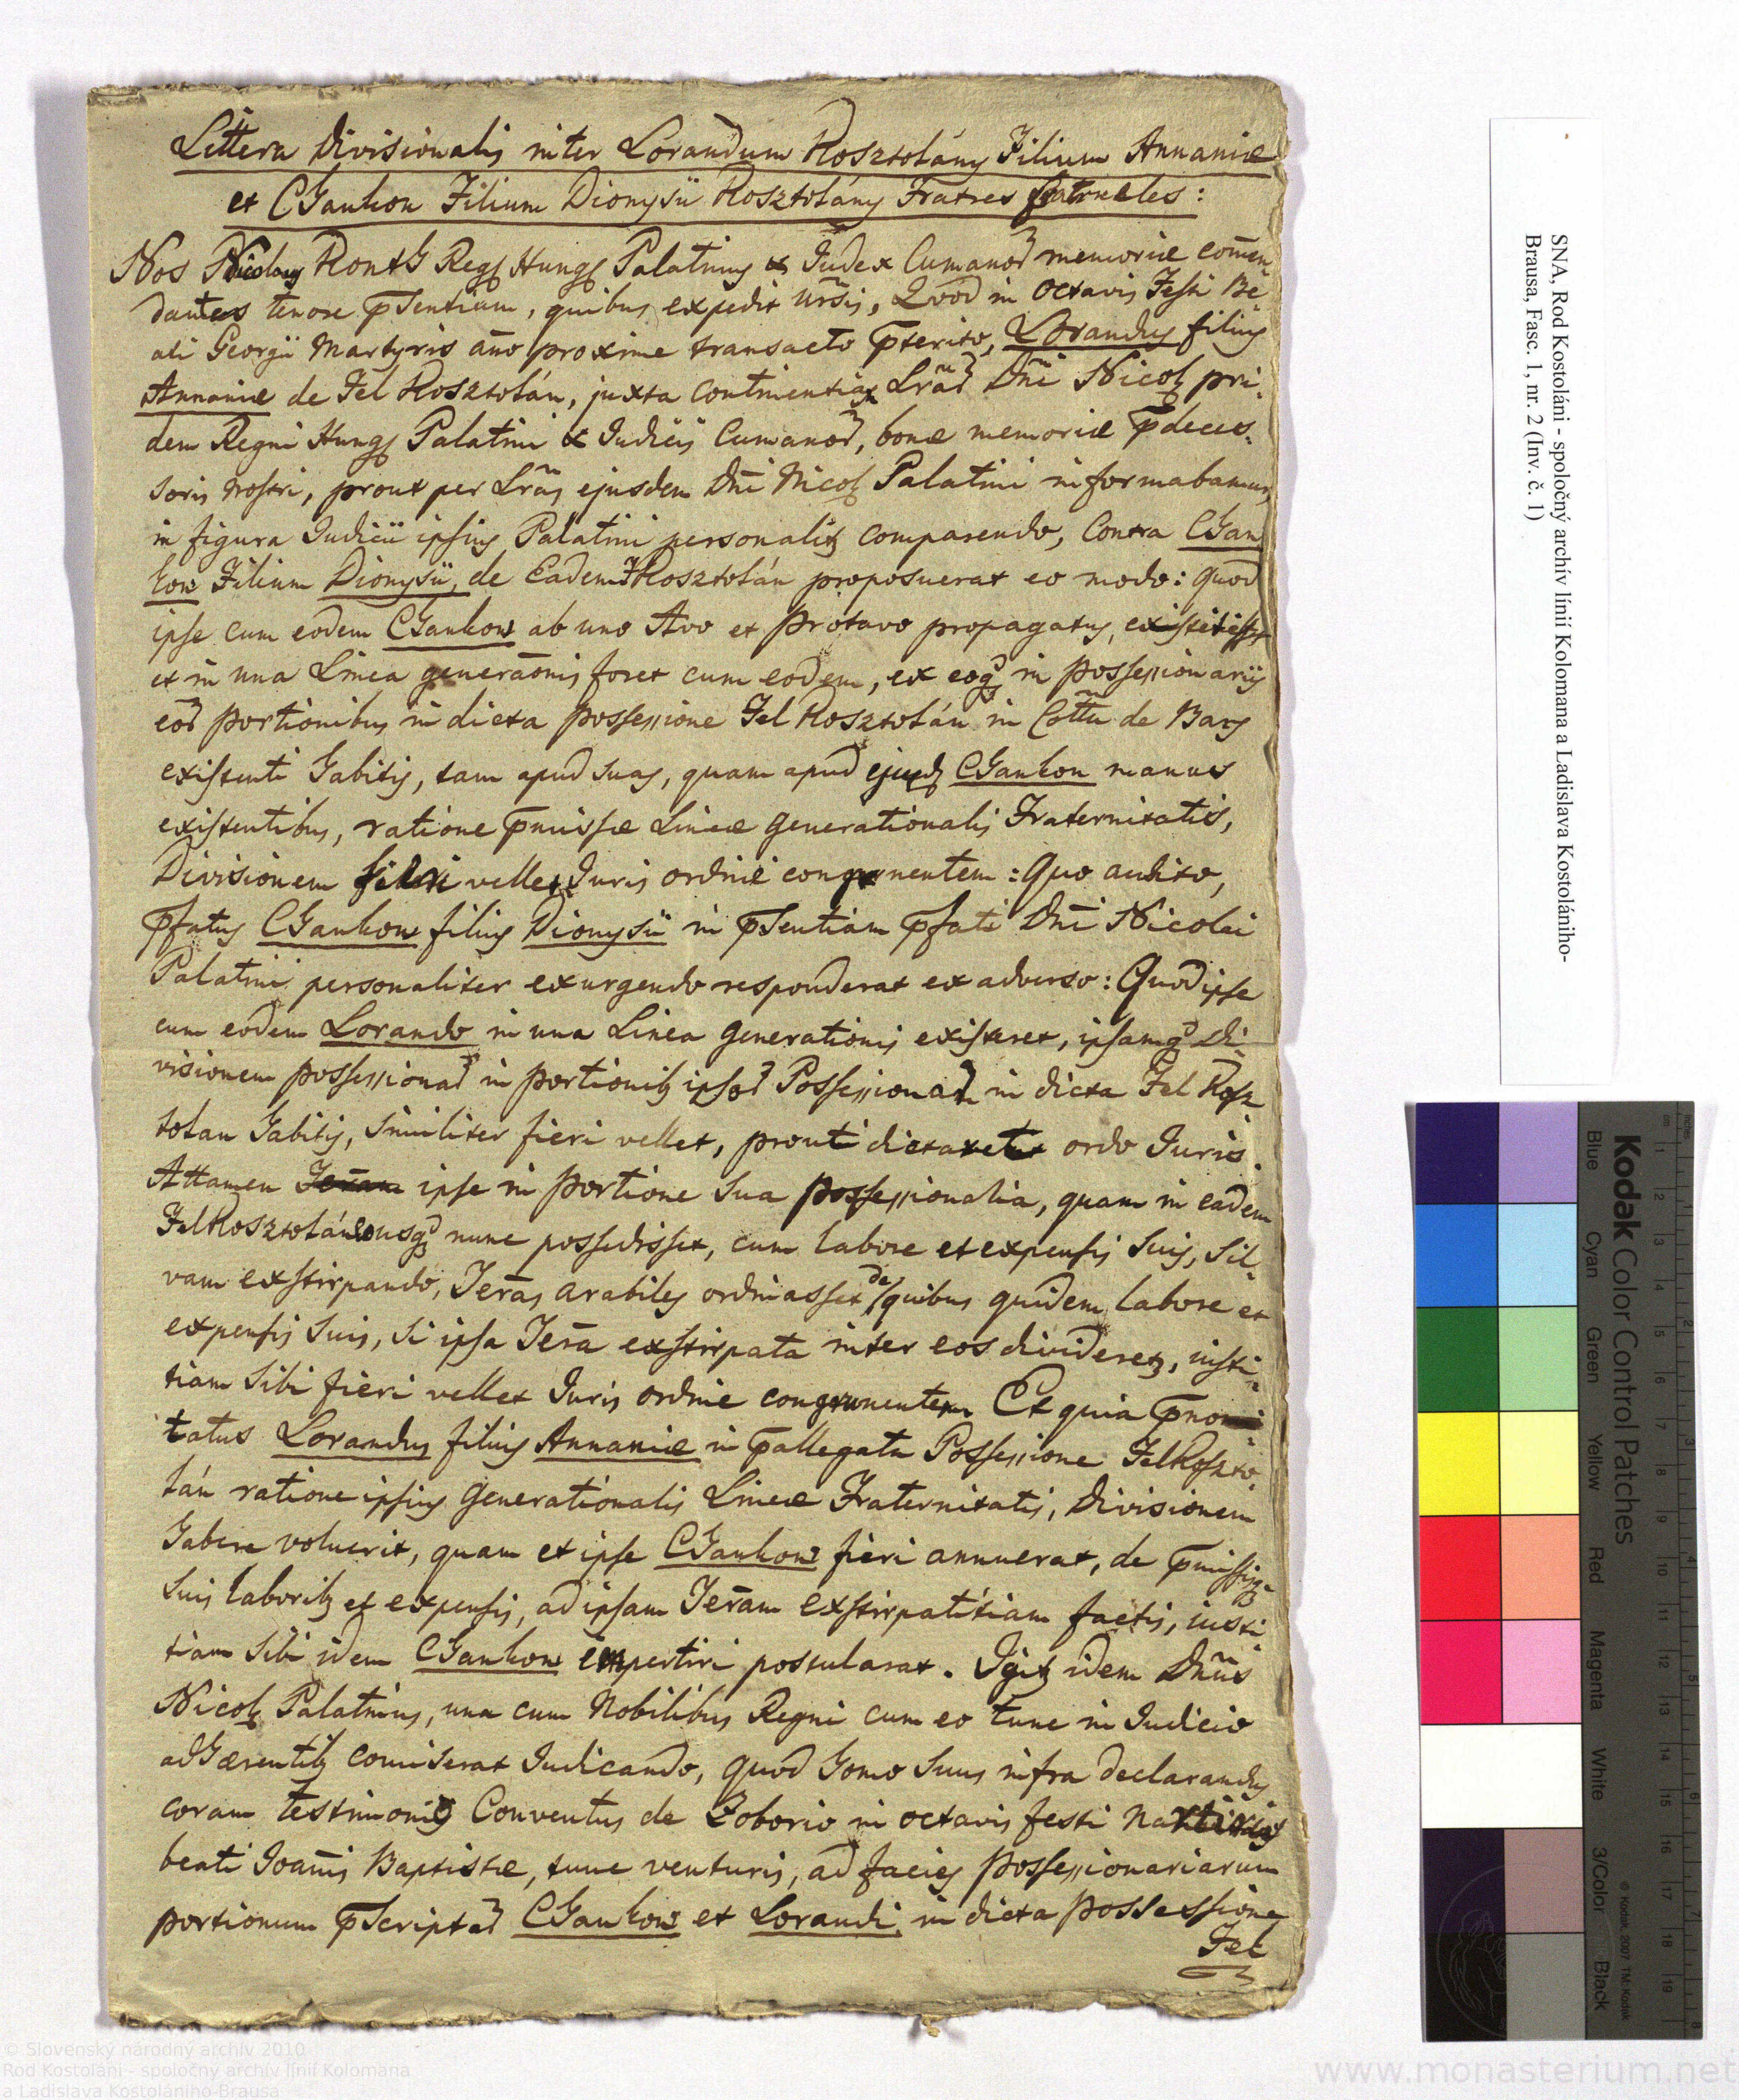 Littera Divisionalis inter Lorandum Kosztolány Filium Annaniæ
et Chankon Filium Dionysii Kosztolány Fratres Patrueles:
Nos Nicolaus Konth Regni Hung. Palatinus et Judex Cumanor. memoriæ com̄en-
dantes tenore p̄sentium, quibus expedit ūrsis, Quod in Octavis Festi Be-
ati Georgii Martyris an̄o proxime transacto p̄terito, Lorandus filius
Annaniæ de Fel Kosztolán, juxta continentiam Lrār. Dn̄i Nicol. pri-
dem Regni Hung. Palatini et Judicis Cumanor., bonæ memoriæ p̄deces-
soris nostri, prout per Lrās ejusdem Dn̄i Nicol. Palatini informabamur,
in figura Judicii ipsius Palatini personalit. comparendo, Contra Chan
kow Filium Dionysii, de Eadem F Kosztolán proposuerat eo modo: quod
ipse cum eodem Chankow ab uno Avo et Protavo propagatus, existitisset
et in una Linea generaōnis foret cum eodem, ex eoq. in possessionariis
eor. portionibus in dicta possessione Fel Kosztolán in Cottu de Bars
existenti habitis, tam apud suas, quam apud ejusd. Chankon manus
existentibus, ratione p̄missæ Lineæ generationalis Fraternitatis,
Divisionem fieri vellet Juris ordine congruentem: Quo audito,
p̄fatus Chankow filius Dionysii in p̄sentiam p̄fati Dn̄i Nicolai
Palatini personaliter exurgendo responderat ex adverso: Quod ipse
cum eodem Lorando in una Linea generationis existeret, ipsamq. Di-
visionem possessionar. in portionib. ipsor. Possessionar. in dicta Fel Kosz-
tolan habitis, similiter fieri vellet, prouti dictaret ordo Juris.
Attamen Teram ipse in portione sua possessionalia, quam in eadem
Fel Kosztolán eousq. nunc possedisset, cum labore et expensis suis, Sil-
vam exstirpando, Terās arabiles ordinasset de quibus quidem labore et
expensis suis, si ipsa Terā exstirpata inter eos divideret., iusti-
tiam sibi fieri vellet Juris ordine congruentem Et quia p̄no
tatus Lorandus filius Annaniæ in p̄allegata Possessione Fel Koszto
lán ratione ipsius generationalis Lineæ Fraternitatis, Divisionem
habere voluerit, quam et ipse Chankow fieri annuerat, de p̄missisq.
suis laborib. et expensis, ad ipsam Terām exstirpatitiam factis, iusti
tiam sibi idem Chankow impertiri postularat. Igit. idem Dn̄us
Nicol. Palatinus, una cum Nobilibus Regni cum eo tunc in Judicio
adhærentib. com̄iserat Judicando, quod homo suus infra declarandus
coram testimonio Conventus de Zoborio in octavis festi Nativitatis
beati Joan̄is Baptistæ, tunc venturis, ad facies possessionariarum
portionum p̄scriptar. Chankow et Lorandi in dicta possessione
Fel
SNA, Rod Kostoláni - spoločný archív línií Kolomana a Ladislava Kostolániho-
Brausa, Fasc. 1, nr. 2 (Inv. č. 1)
Kodak Color Control Patches
Blue Cyan Green Yellow Red Magenta White 3/Color Black
© Kodak, 2007 TM: Kodak
© Slovenský národný archív 2010
Rod Kostoláni - spoločný archív línií Kolomana
a Ladislava Kostolániho-Brausa
www.monasterium.net